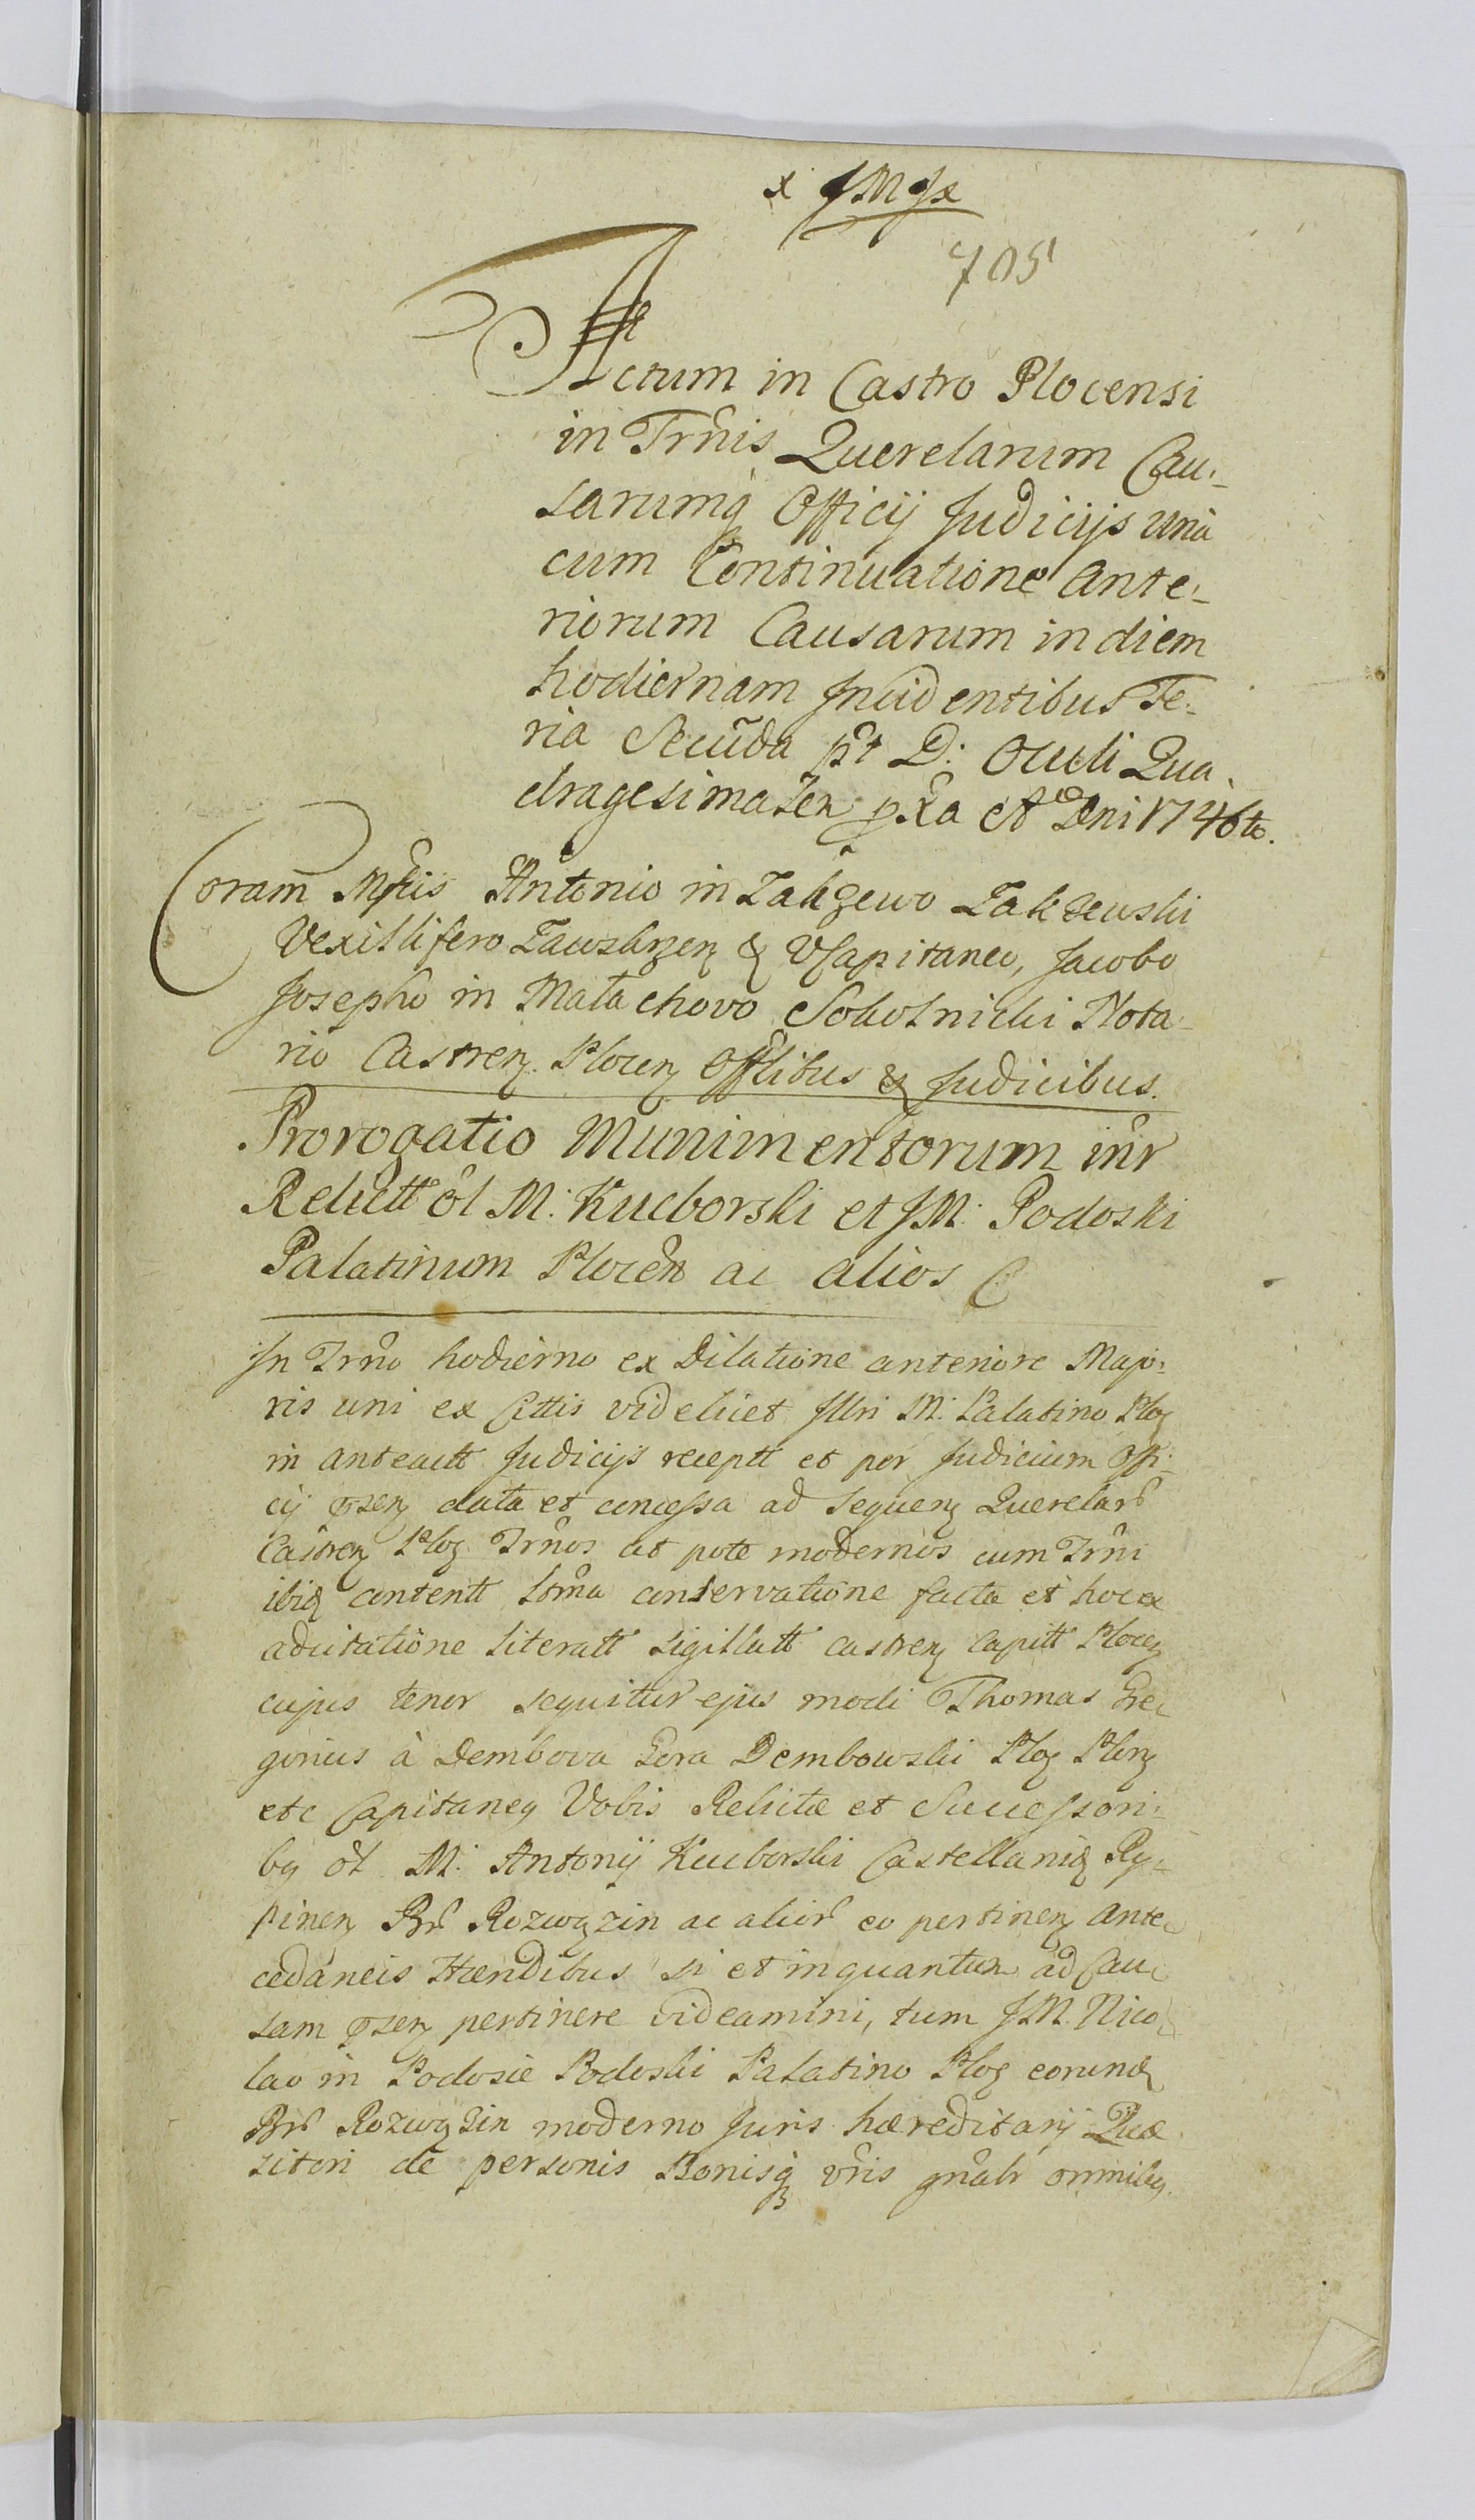 x JMJx
705
Actum in Castro Plocensi
in Trn̂is Querelarum Cau-
sarumq Officij Judicijs una
cum Continuatione Ante-
riorum Causarum in diem
hodiernam Incidentibus Fe-
ria Secũda pt D: Oculi Qua-
dragesimalen pxa Ao Dni 1746to.
Coram Mfcis Antonio in Zakzewo Zakrzewski
Vexillifero Zawskrzen & VCapitaneo, Jacobo
Josepho in Małachovo Sokolnicki Nota-
rio Castren. Plocen Offlibus & Judicibus.
Prorogatio Munimentorum inr
Relictt ol M: Kucborski et JM: Podoski
Palatinum Plocen ac alios C
In Trno hodierno ex Dilatione anteriore Majo-
ris uni ex Cittis videlicet Illri M: Palatino Ploc
in anteactt Judicijs receptt et per Judicium Offi-
cij psen data et concessa ad sequen Querelar
Castren Ploc Trnos ut pote modernos cum Trni
ibid contentt Istma conservatione facta et hoc ex
adcitatione literatt sigillatt castren Capitt Plocen
cujus tenor sequitur ejus modi Thomas Gre-
gorius à Dembova Gora Dembowski Ploc Plon
etc Capitaneq Vobis Relictæ et Successori-
bq ol M: Antonij Kucborski Castellanid Ry-
pinen Br Rozwozin ac alior eo pertinen Ante-
cedaneis Hæredibus si et inquantum ad Cau-
sam psen pertinere videamini, tum JM. Nico-
lao in Podosie Podoski Palatino Ploc eorund
Br Rozwozin moderno Juris hæreditarij Quæ-
sitori de personis Bonisq vris gnalr omnibq.